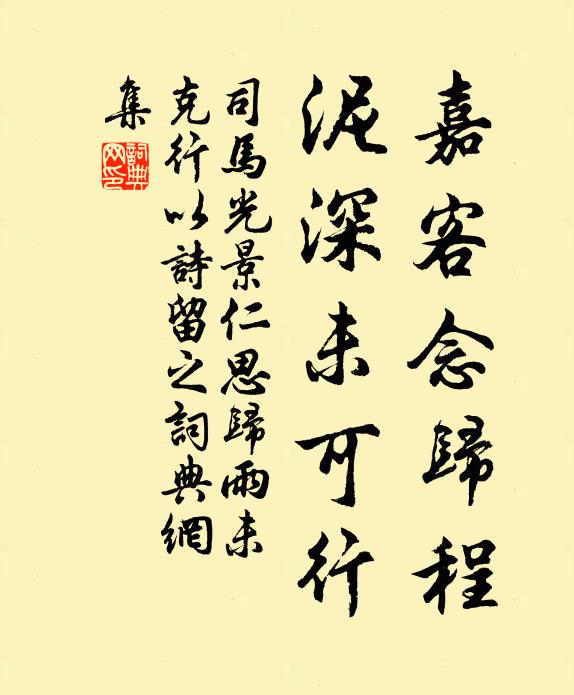 嘉客念歸程
泥深未可行
司馬光景仁思歸雨未
克行以詩留之詞典網
集
詞典
網印